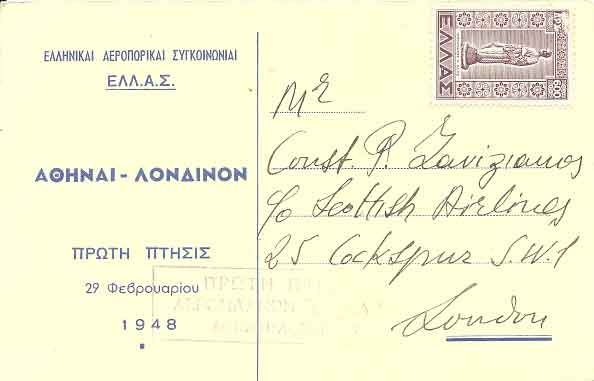 ΕΛΛΗΝΙΚΑΙ ΑΕΡΟΠΟΡΙΚΑΙ ΣΥΓΚΟΙΝΩΝΙΑΙ
ΕΛΛ.Α.Σ.
ΑΘΗΝΑΙ - ΛΟΝΔΙΝΟΝ
ΠΡΩΤΗ ΠΤΗΣΙΣ
29 Φεβρουαρίου
1948
ΕΛΛΑΣ
500
Mr
Const. P.
c/o Scottish Airlines
25 Cockspur S.W.1
London
ΠΡΩΤΗ